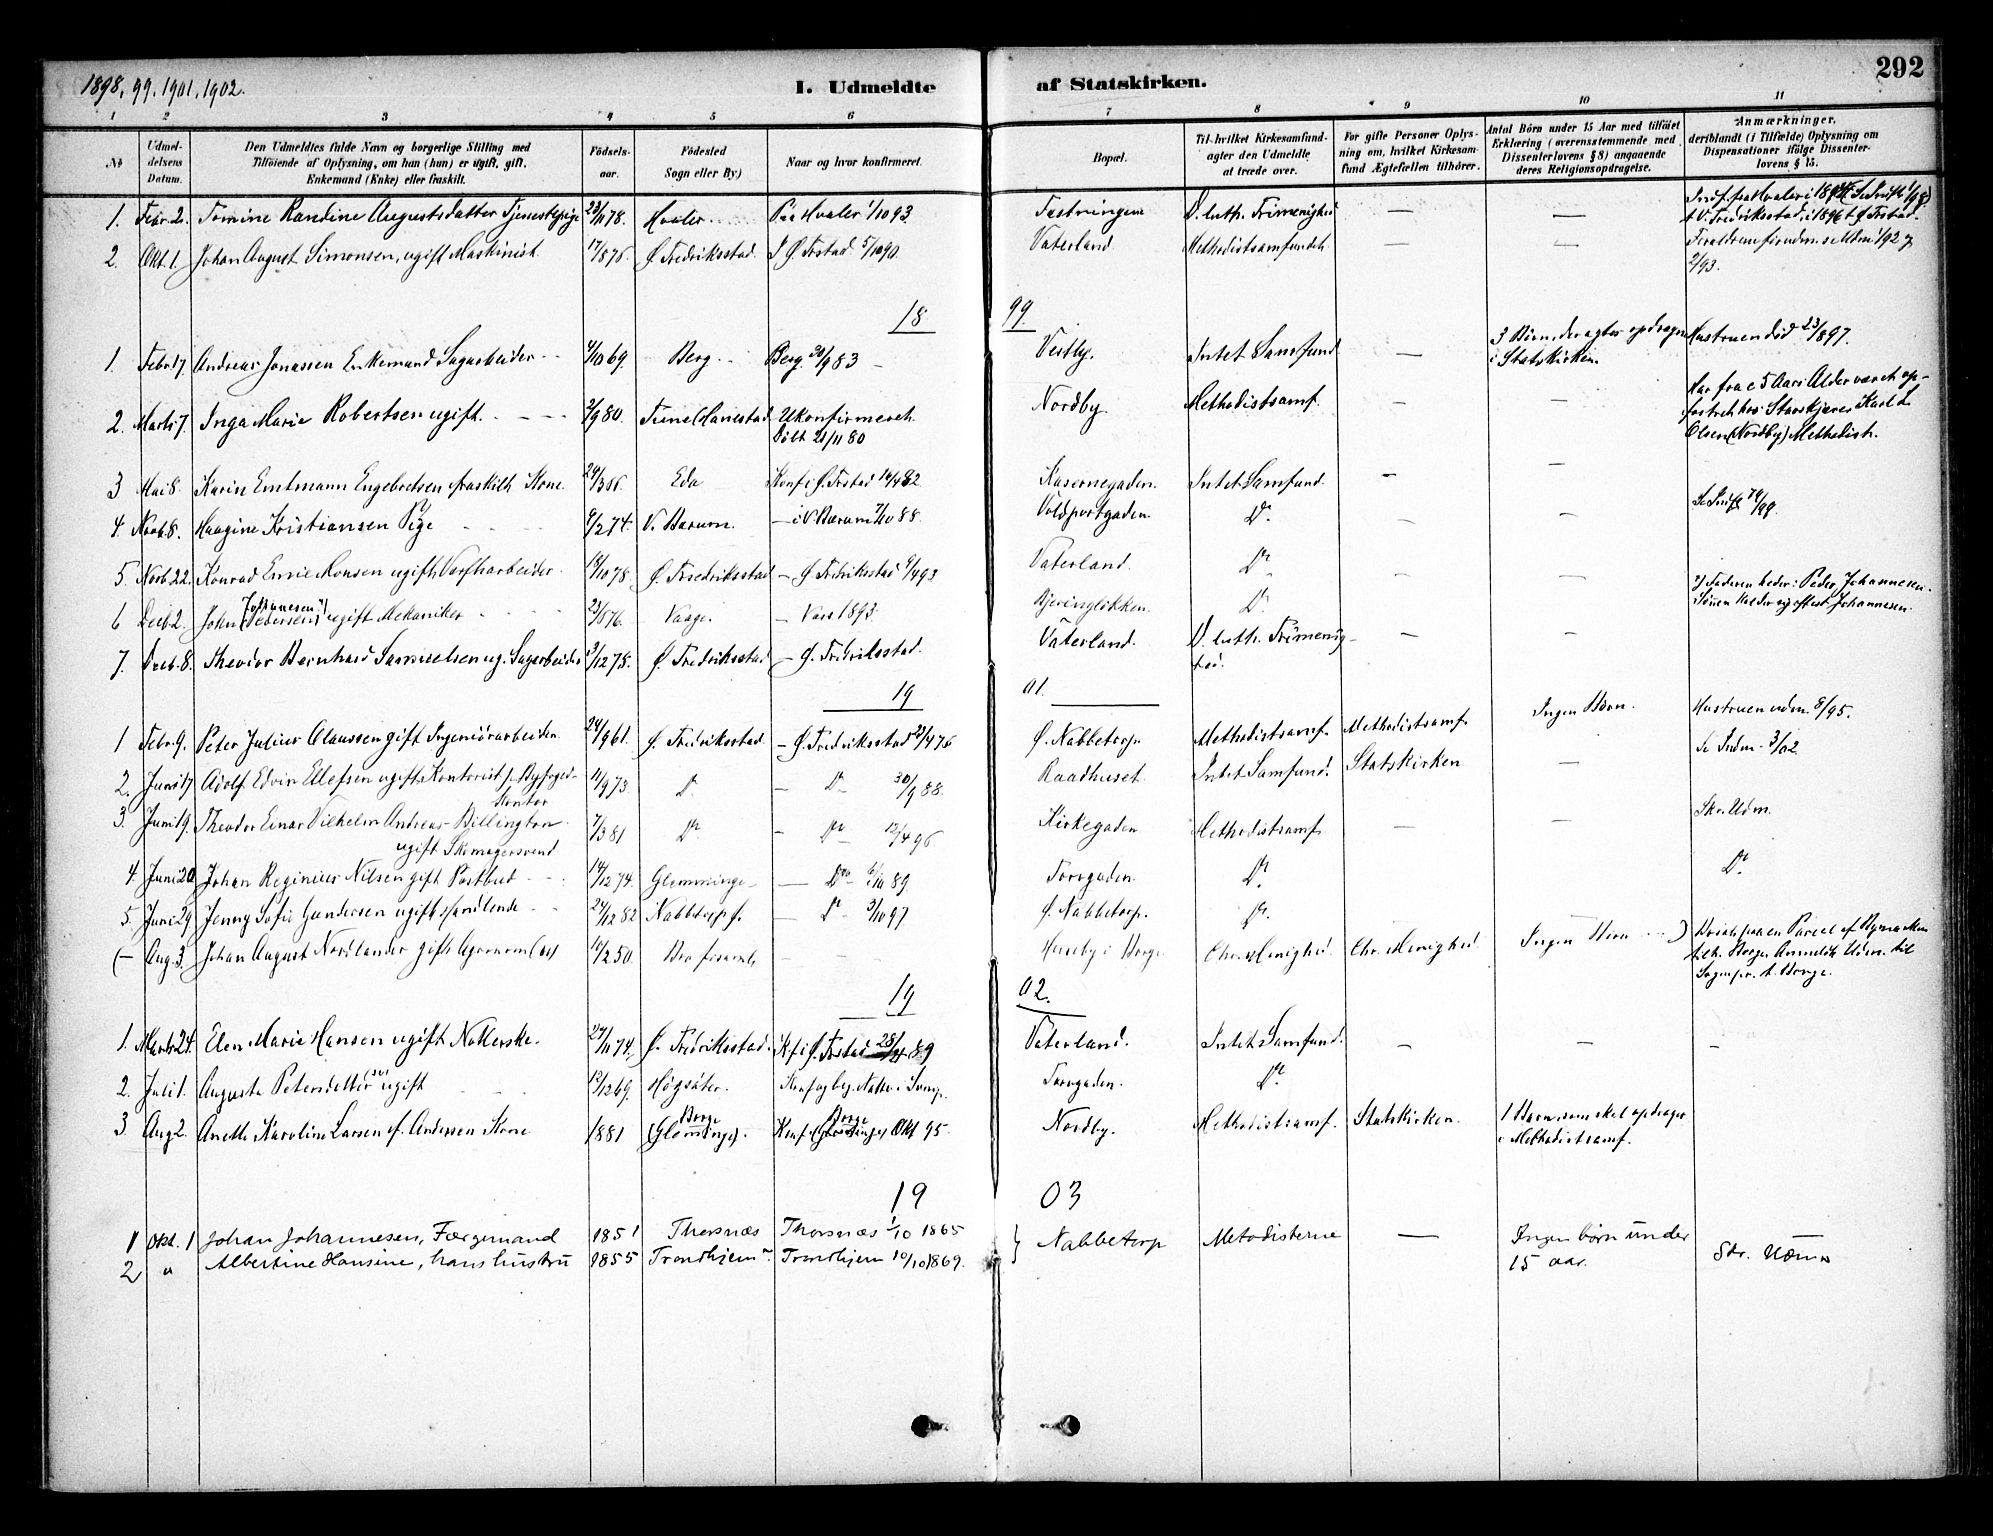 292
1898, 99. 1901. 1902.
I. Udmeldte af Statskirken.
1 2 3 4 5 6 7 8 9 10 11
No
Udmeldelsens Datum.
Den Udmeldtes fulde Navn og borgerlige Stilling med
Tilføiende af Oplysning, om han (hun) er ugift, gift,
Enkemand (Enke) eller fraskilt.
Fødselsaar.
Fødested
Sogn eller By)
Naar og hvor konfirmeret.
Bopæl.
Til hvilket Kirkesamfund
agter den Udmeldte
at træde over.
For gifte Personer Oplysning
om, hvilket Kirkesamfund
Ægtefællen tilhører.
Antal Børn under 15 Aar med tilføiet
Erklæring (overensstemmende med
Dissenterlovens § 8) angaaende
deres Religionsopdragelse.
Anmærkninger,
deriblandt (i Tilfælde) Oplysning om
Dispensationer ifølge Dissenterlovens
§ 15.
1. Febr. 2. Tomine Randine Augustsdatter Tjenestepige 23/11 78. Hvaler. Paa Hvaler 1/10 93 D. luth. Frimenighed — —
2. Okt. 1. Johan August Simonsen, ugift Maskinist 17/8 75. Ø. Fredriksstad. I Ø. Frstad 5/10 90. Vaterland. Methodistsamfundet — —
2/93.
18 99
1. Febr 17. Andreas Jonassen Enkemand Sagarbeider 4/10 69. Berg. Berg. 30/9 83 Vestby. Intet Samfund — 3 Børn, der agtes opdragne i Statskirken. Hustruen død 23/8 97.
2. Marts 7. Inga Marie Robertsen ugift. 3/9 80. Tune Ukonfirmeret. Døbt 21/11 80 Nordby. Methodistsamf. — — Har fra c 5 Aars Alder været opfostret hos Karl L. Olsen (Nordby) Methodist.
3 Mai 8. Karin Emtmann Engebretsen fraskilt Kone. Eda Konf i Ø. Frstad 14/4 82 Kasernegaden. Intet Samfund. — —
4. Novb. 8. Haagine Kristiansen Pige 9/2 74. V. Bærum. — i V. Bærum 7/10 88 Voldportgaden. Do. — —
5. Novb 22. Konrad Emil Monsen ugift Værftsarbeider. 18/10 78. Ø. Fredriksstad — Ø. Fredriksstad 9/4 93 Vaterland. Do — —
6 Decb 2. John Johannesen (Pedersen) ugift Mekaniker 23/5 76. Vaage. — Vos 1893. Bjeringløkken. Do. Faderen heder: Peder Johannesen. Sønen kalder sig oftest Johannesen.
7. Decb. 8. Theodor Bernhard Samuelsen ug. Sagarbeider 3/12 78. Ø. Fredriksstad — Ø. Fredriksstad. Vaterland. D. luth. Frimenighed. — —
19 01.
1 Febr. 9. Peter Julius Claussen gift Ingeniørarbeider. 24/9 61. Ø. Fredriksstad. — Ø. Fredriksstad 23/4 76 Ø. Nabbetorp. Methodistsamf. Methodistsamf. Ingen Børn. Hustruen udm. 8/95.
2. Juni 17 Adolf Edvin Ellefsen ugift Kontorist p. Byfoged-Kontor 11/9 73. Do. — Do 30/9 88. Raadhuset. Intet Samfund. Statskirken — Se Indm. 3/02
3. Juni 19. Theodor Einar Vilhelm Andreas Billington ugift Skomagersvend 7/3 81 Do — Do 12/4 96 Kirkegaden Methodistsamf. — — Skr. Udm.
4. Juni 20 Johan Reginius Nilsen gift Postbud 14/12 74. Glemminge — Do 6/10 89 Torvgaden. Do. Do.
5. Juni 29 Jenny Sofie Gundersen ugift Handlende 24/12 82 Nabbetorp f. — Do 3/10 97 Ø. Nabbetorp. Do.
(— Aug 3. Johan August Nordlander gift Agronom 10/2 50. Bro — — i Borge Chr. Menighed. Chr. Menighed. Ingen Børn )
19 02.
1. Marts 24. Elen Marie Hansen ugift Nætterske. 27/10 74. Ø. Fredriksstad. Kf i Ø. Frstad 28/4 89 Vaterland. Intet Samfund. — — —
2. Juli 1. Augusta Petersdatter ugift 12/12 69. Høgsäter. Torvgaden. Do.
3 Aug 2. Anette Karoline Larsen f. Andersen Kone 1881 Borge (Glemminge). Konf i Borge (Glemminge) Okt 95. Nordby. Methodistsamf. Statskirken. 1 Barn, som skal opdrages i Methodistsamf.
19 03
1 Okt. 1 Johan Johannesen, Færgemand 1851 Thorsnæs Thorsnæs 1/10 1865 } Nabbetorp Metodisterne — Ingen børn under 15 aar. Skr. Udm.
2 " Albertine Hansine, hans hustru 1855 Trondhjem Trondhjem 10/10 1869.